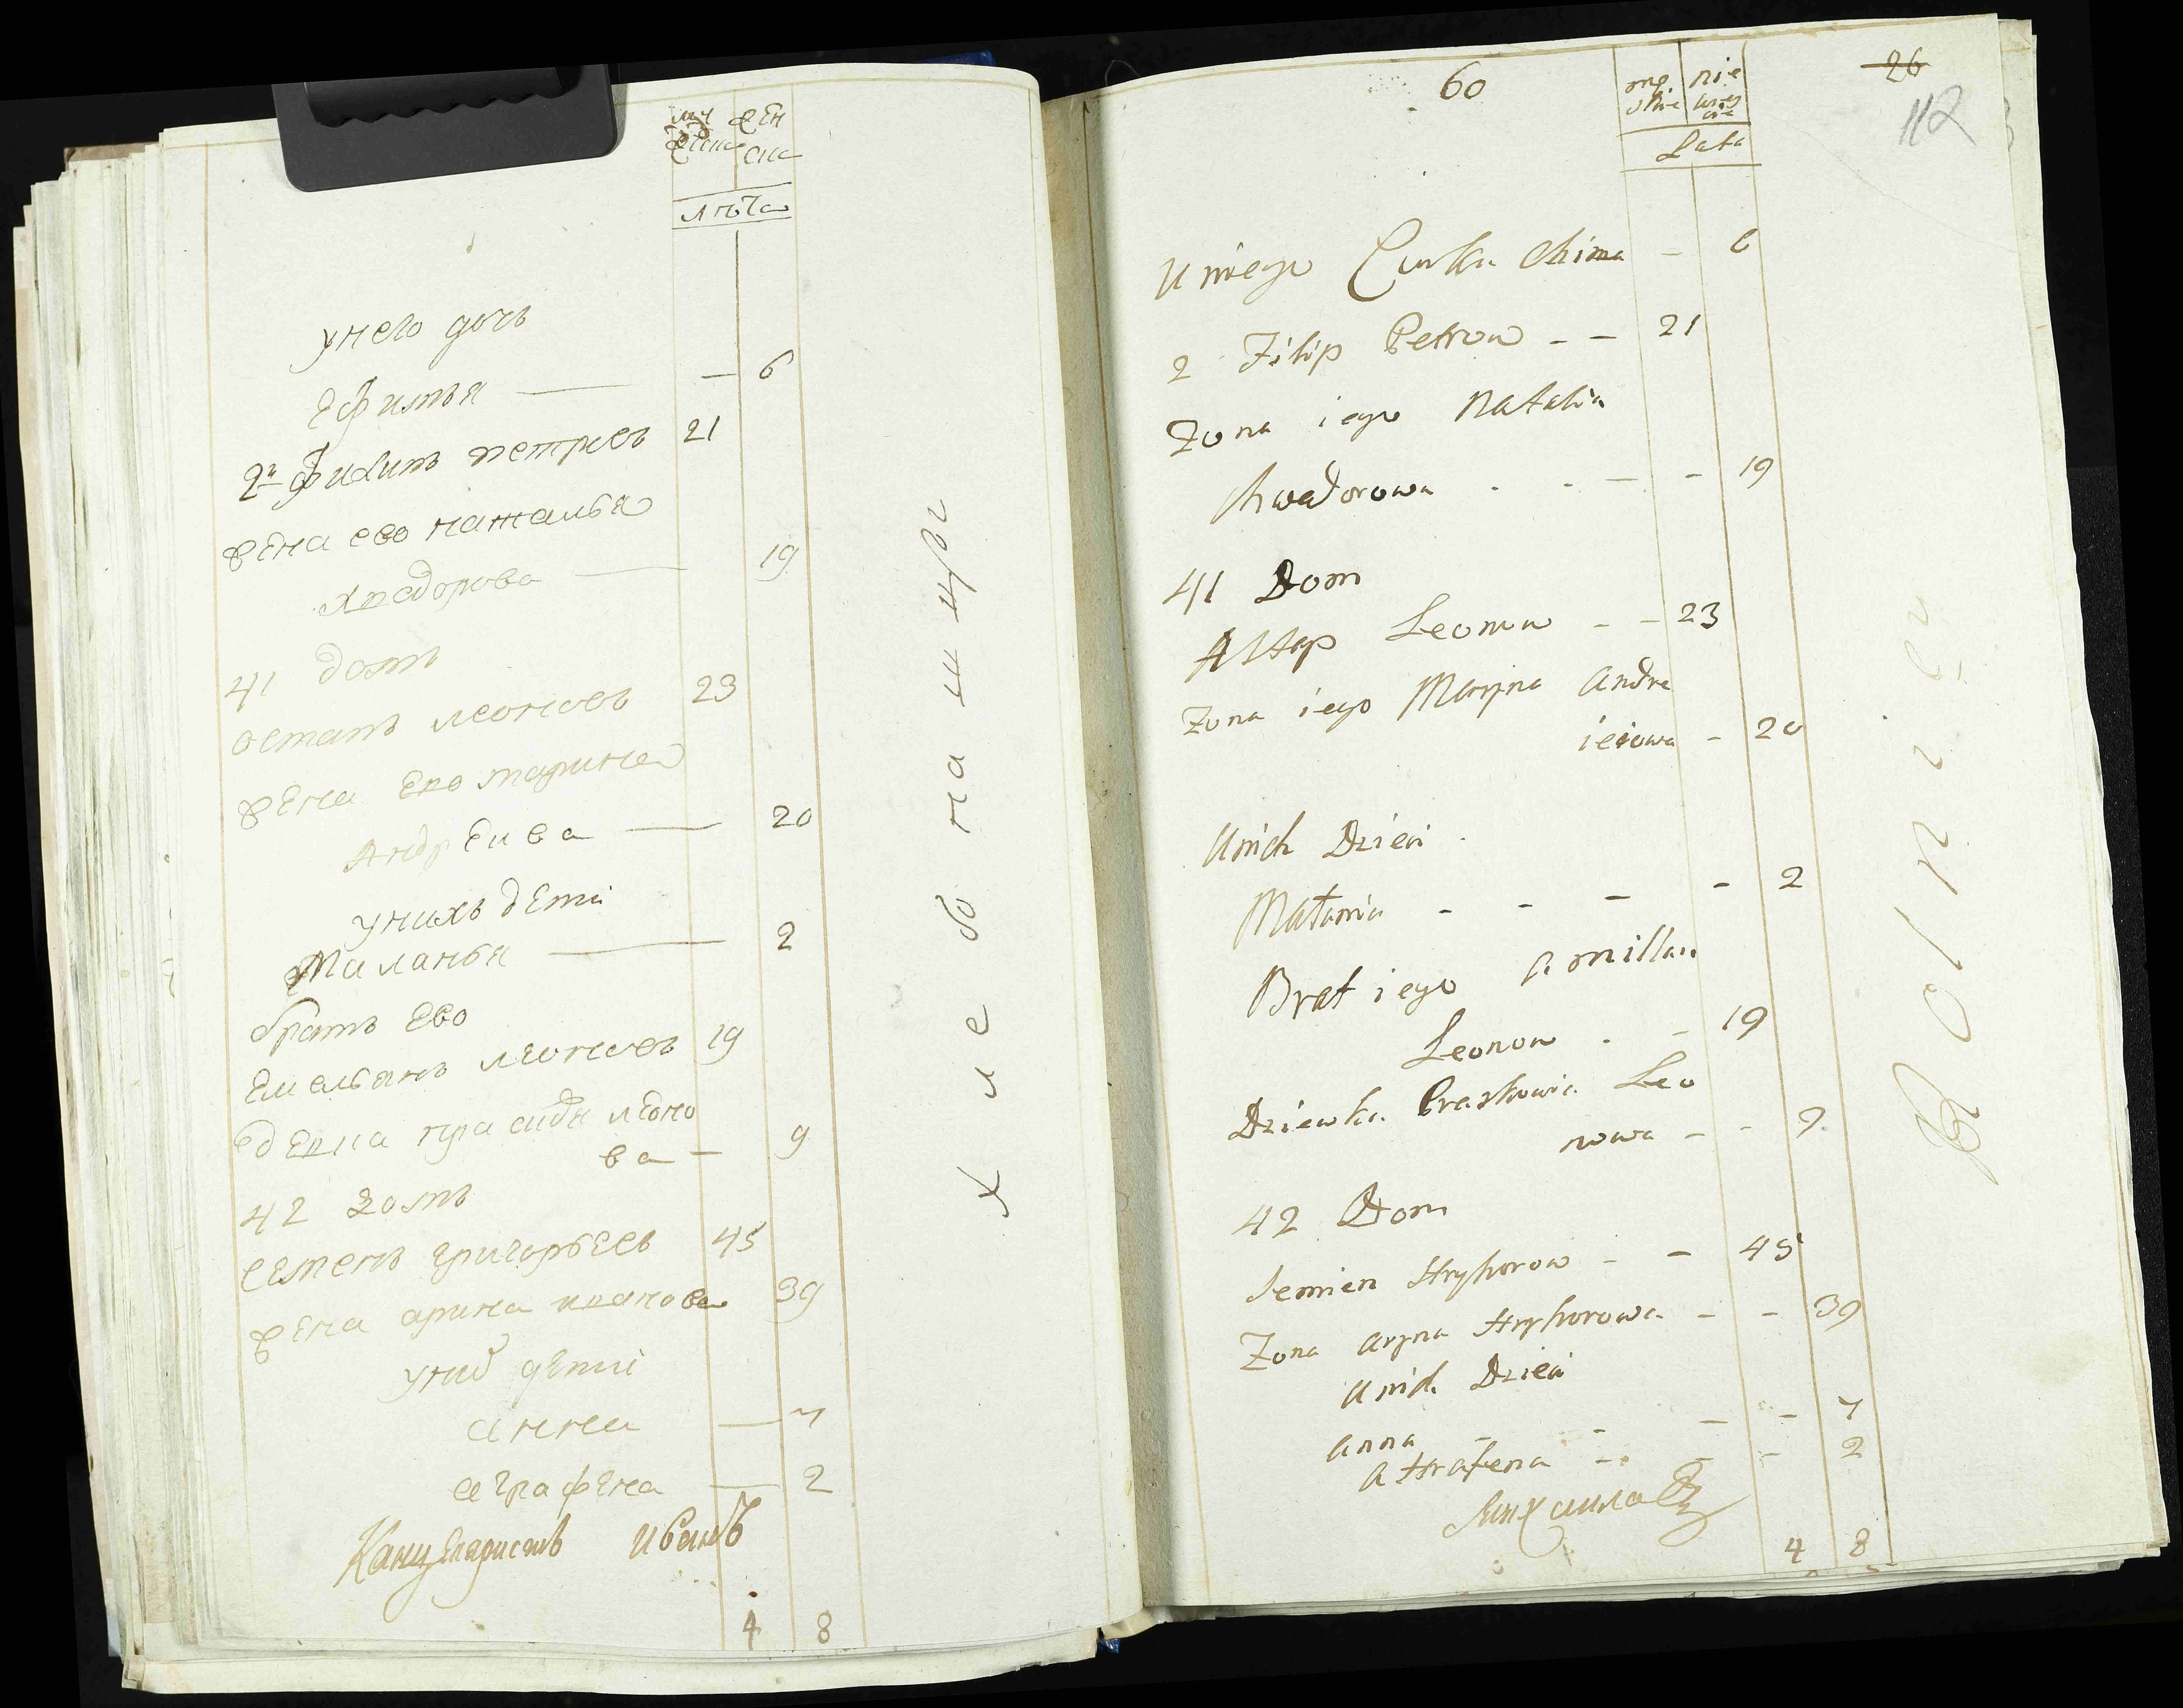 муж жен
ска ска
лѣта
у него дочь
Ефимья — — 6
2й Филипъ петровъ 21
жена ево наталья
хведорова — 19
41 домъ
остапъ леоновъ 23
жена Ево марина
Андрѣива — 20
у нихъ дети
Маланья — 2
братъ Ево
Емельянъ леоновъ 19
девка праскдя леоно
ва — 9
42 домъ
семенъ григорьевъ 45
жена арина иванова 39
у них дети
анна — 7
аграфена — 2
Канцеляристъ иванъ
4 8
хлебопашцы
60
26
112
mę nie
skie wieś
cie
Lata
U niego Curka Chima - 6
2 Filip Petrow - - 21
Zona iego Natalia
Chwadorowa - - - 19
41 Dom
Astap Leonow - - 23
Zona iego Maryna Andre
ieiowa - 20
U nich Dzieci
Małania - - - - 2
Brat iego Amillan
Leonow - - 19
Dziewka Praskowia Leo
nowa - - 9
42 Dom
Semien Hryhorow - - 45
Zona Aryna Hryhorowa - - 39
U nich Dzieci
Anna - - - - 7
Ahrafena - - - 2
Михаиловъ
4 8
Rolnicy